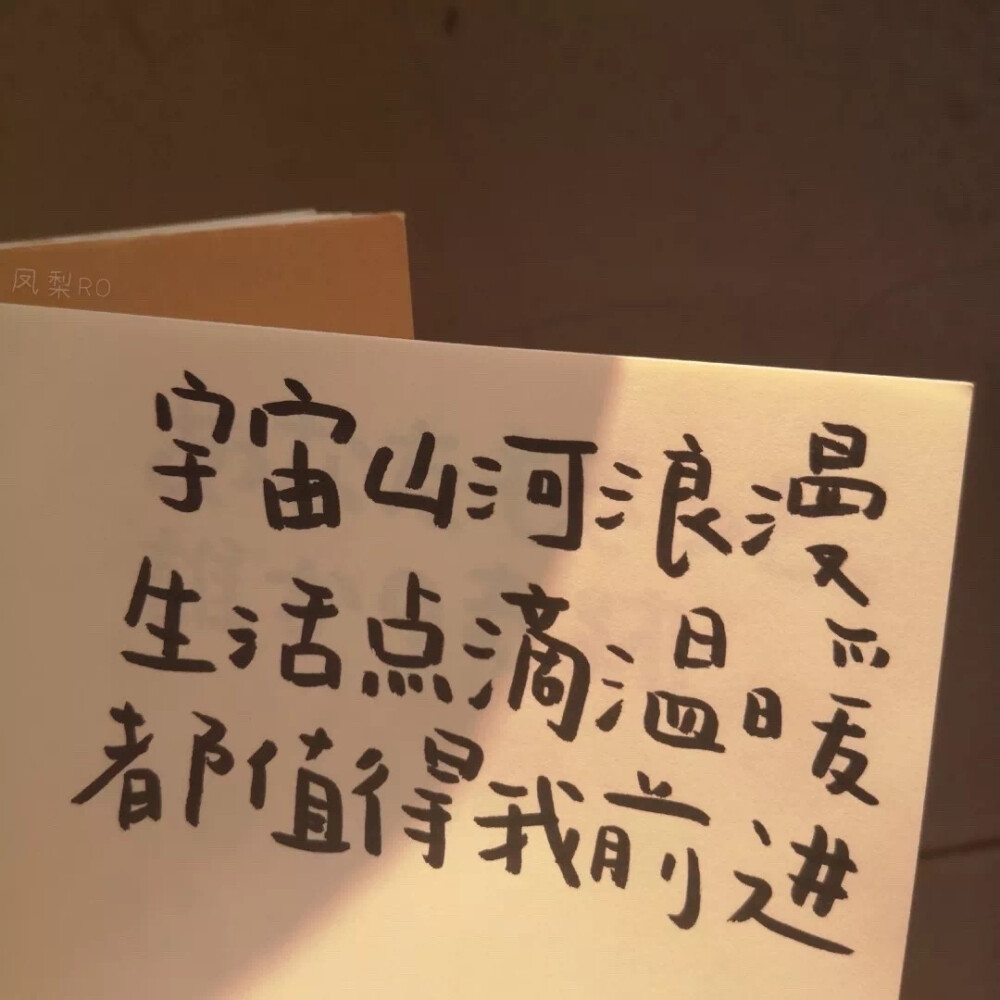 凤梨RO
宇宙山河浪漫
生活点滴温暖
都值得我前进